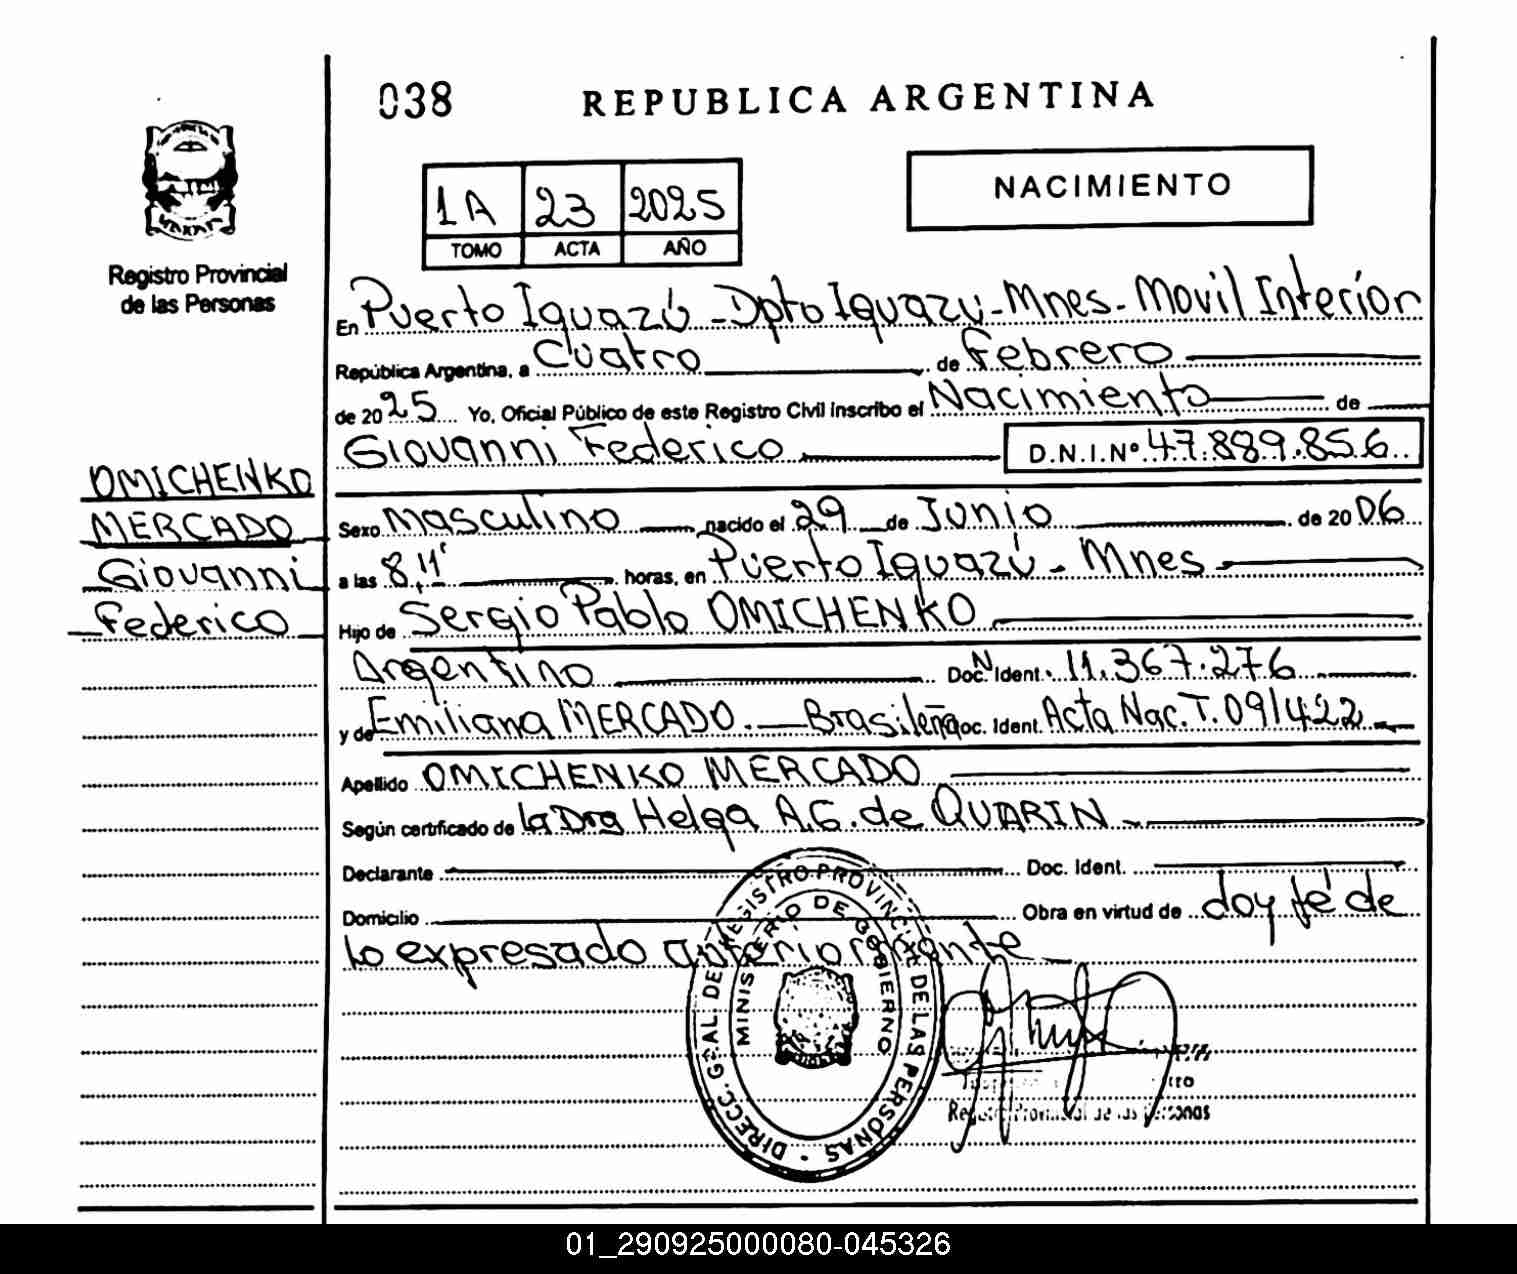 038
REPUBLICA ARGENTINA
1A 23 2025
TOMO ACTA AÑO
NACIMIENTO
Registro Provincial
de las Personas
En Puerto Iguazú - Dpto Iguazú - Mnes - Movil Interior
República Argentina, a Cuatro de Febrero
de 2025 Yo, Oficial Público de este Registro Civil inscribo el Nacimiento de
Giovanni Federico D.N.I.Nº 47.889.856
OMICHENKO
MERCADO
Giovanni
Federico
Sexo Masculino nacido el 29 de Junio de 2006
a las 8,11' horas, en Puerto Iguazú - Mnes
Hijo de Sergio Pablo OMICHENKO
Argentino Doc. N Ident. 11.367.276
y de Emiliana MERCADO. Brasileña Doc. Ident. Acta Nac. T. 09/422
Apellido OMICHENKO MERCADO
Según certificado de la Dra Helga A.G. de QUARIN
Declarante Doc. Ident.
Domicilio Obra en virtud de doy fé de
lo expresado anteriormente
DIRECC. GRAL DE REGISTRO PROVINCIAL DE LAS PERSONAS
MINISTERIO DE GOBIERNO
Registro Provincial de las Personas
01_290925000080-045326